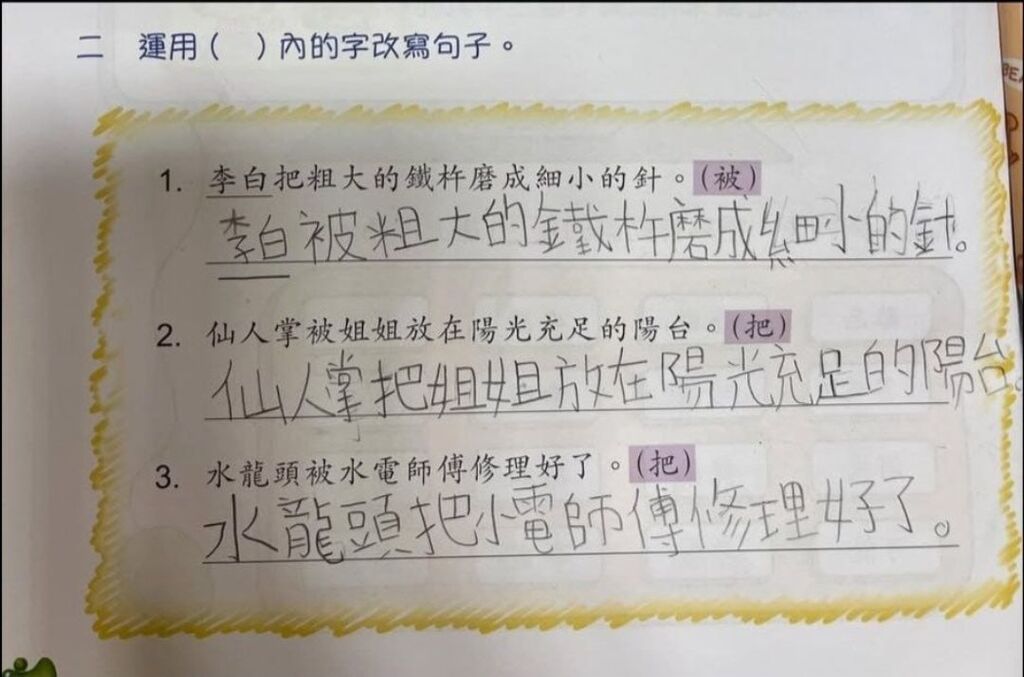 二 運用( )內的字改寫句子。
1. 李白把粗大的鐵杵磨成細小的針。(被)
李白被粗大的鐵杵磨成細小的針。
2. 仙人掌被姐姐放在陽光充足的陽台。(把)
仙人掌把姐姐放在陽光充足的陽台。
3. 水龍頭被水電師傅修理好了。(把)
水龍頭把小電師傅修理好了。